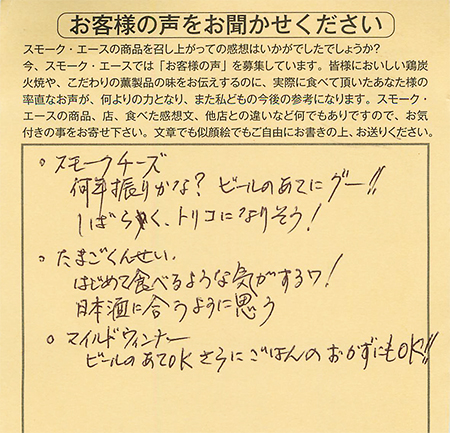 お客様の声をお聞かせください
スモーク・エースの商品を召し上がっての感想はいかがでしたでしょうか?
今、スモーク・エースでは「お客様の声」を募集しています。皆様においしい鶏炭
火焼や、こだわりの薫製品の味をお伝えするのに、実際に食べて頂いたあなた様の
率直なお声が、何よりの力となり、また私どもの今後の参考になります。スモーク・
エースの商品、店、食べた感想文、他店との違いなど何でもありますので、お気
付きの事をお寄せ下さい。文章でも似顔絵でもご自由にお書きの上、お送りください。
○ スモークチーズ
何年振りかな? ビールのあてにグー!!
しばらく、トリコになりそう!
○ たまごくんせい、
はじめて食べるような気がするワ!
日本酒に合うように思う
○ マイルドウィンナー
ビールのあてOK さらにごはんのおかずにもOK!!